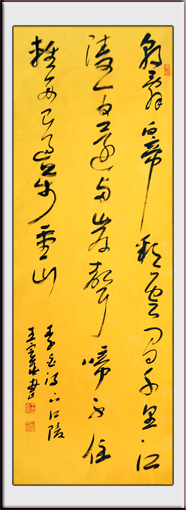 朝辭白帝彩雲間千里江
陵一日還兩岸猿聲啼不住
輕舟已過万重山
李白詩下江陵
王書